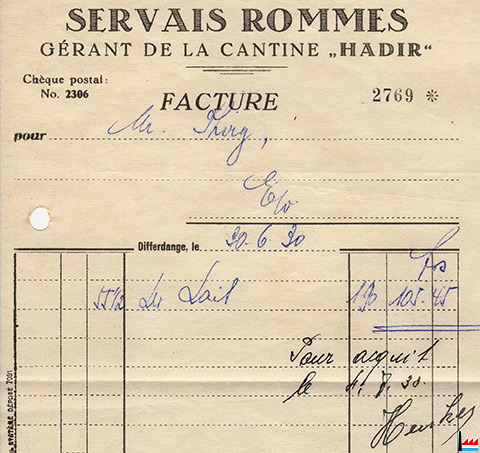 SERVAIS ROMMES
GÉRANT DE LA CANTINE „HADIR“
Chèque postal:
No. 2306
FACTURE 2769 *
pour Mr.
E/v
Differdange, le 30.6.30
frs
55 1/2 Ltr Lait 1.90 105.45
Pour acquit
le 4. 7. 30.